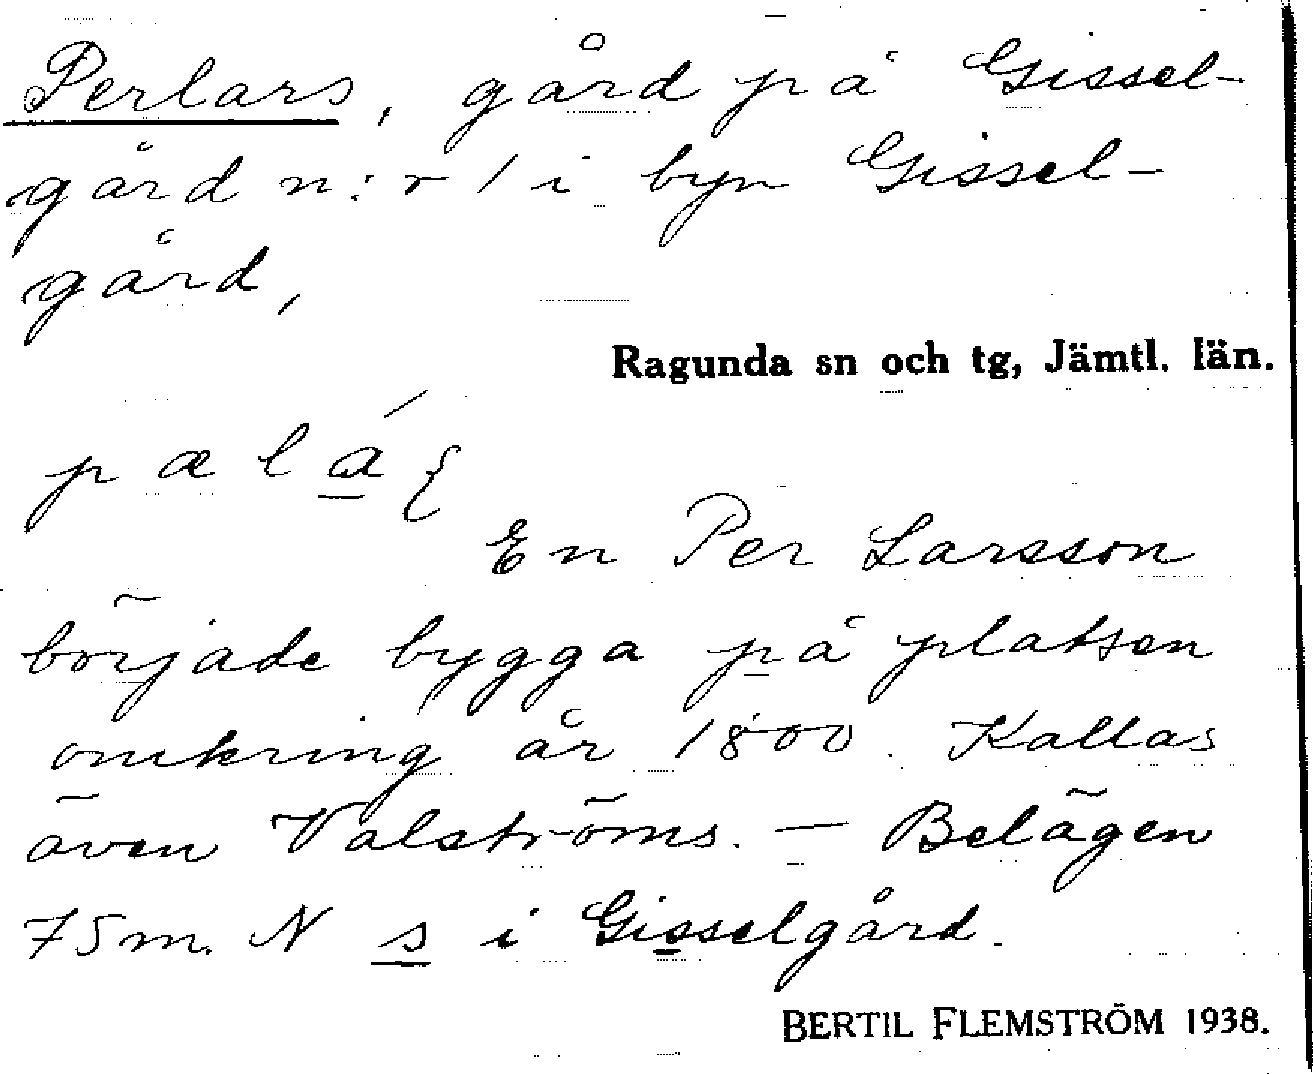 Perlars, gård på Gissel-
gård n:r 1 i byn Gissel-
gård,
Ragunda sn och tg, Jämtl. län.
En Per Larsson
började bygga på platsen
omkring år 1800. Kallas
även Valströms. — Belägen
75 m. N s i Gisselgård.
BERTIL FLEMSTRÖM 1938.